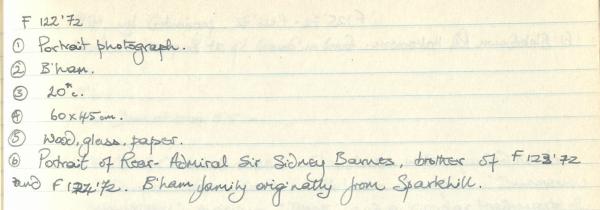 F 122'72
① Portrait photograph.
② B'ham.
③ 20th c.
④ 60 x 45 cm.
⑤ Wood, glass, paper.
⑥ Portrait of Rear-Admiral Sir Sidney Barnes, brother of F 123'72
and F 124'72. B'ham family originally from Sparkhill.